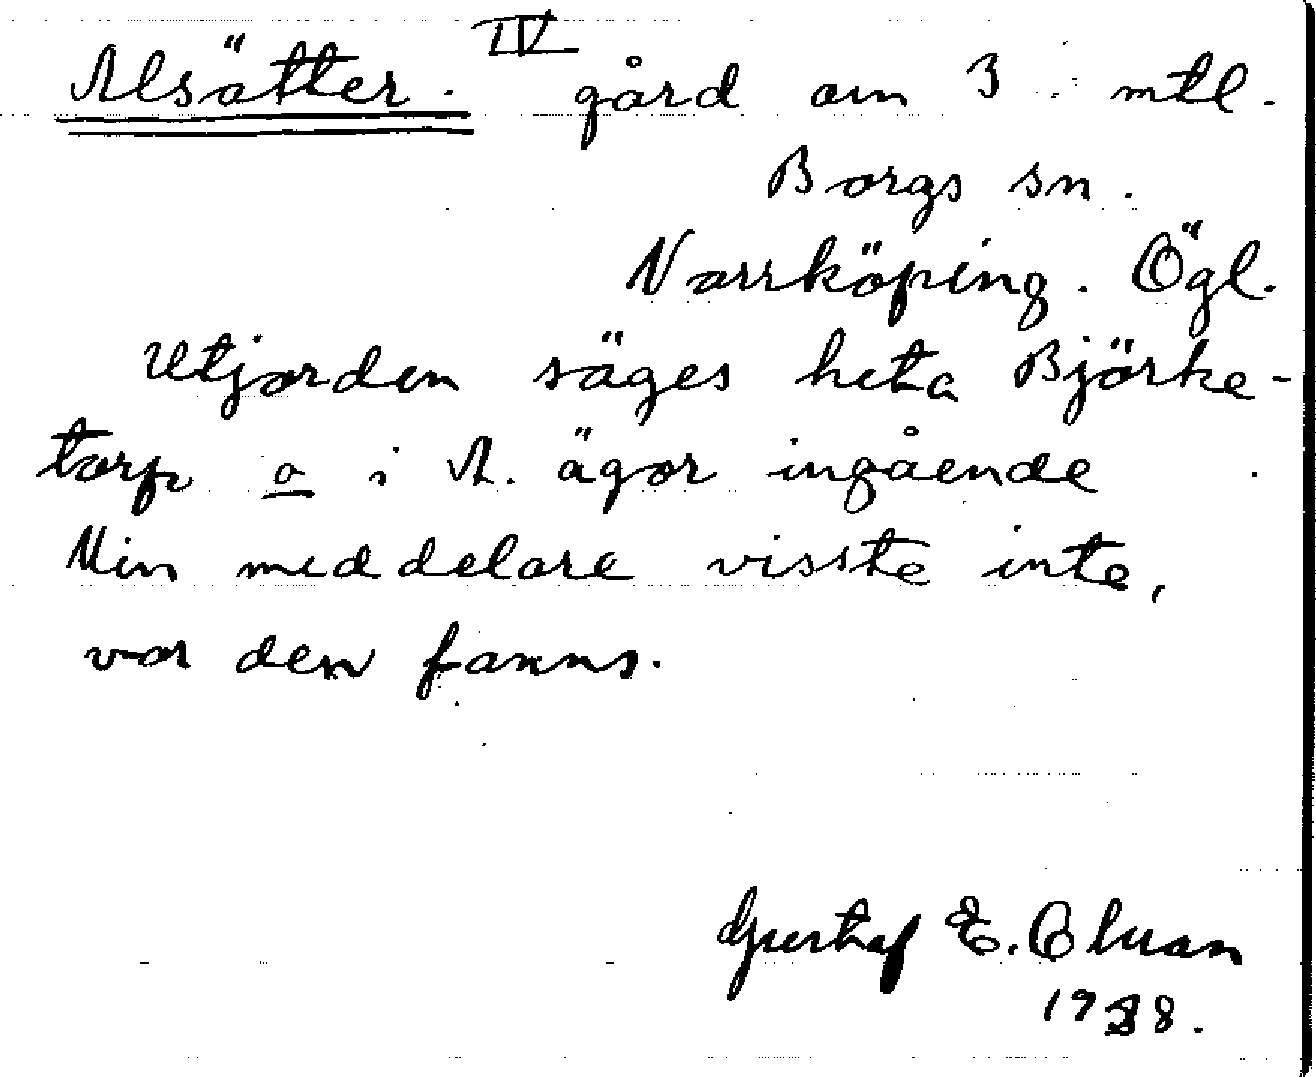 Alsätter. IV gård om 3 mtl.
Borgs sn.
Norrköping. Ögl.
Utjorden säges heta Björke-
torp o i A. ägor ingående
Min meddelare visste inte,
var den fanns.
Gustaf E.
1938.